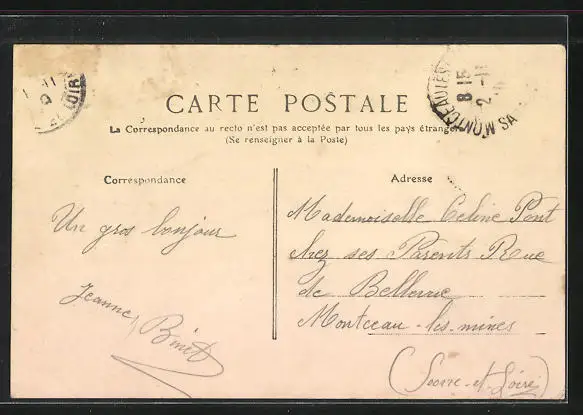 CARTE POSTALE
La Correspondance au recto n'est pas acceptée par tous les pays étrangers
(Se renseigner à la Poste)
Correspondance
Adresse
Un gros bonjour
Jeanne Binet
Mademoiselle Celine Pont
chez ses Parents Rue
de Bellevue
Montceau-les-mines
(Saone-et-Loire)
MONTCEAU LES M
SA
8-15
2-11
LOIR